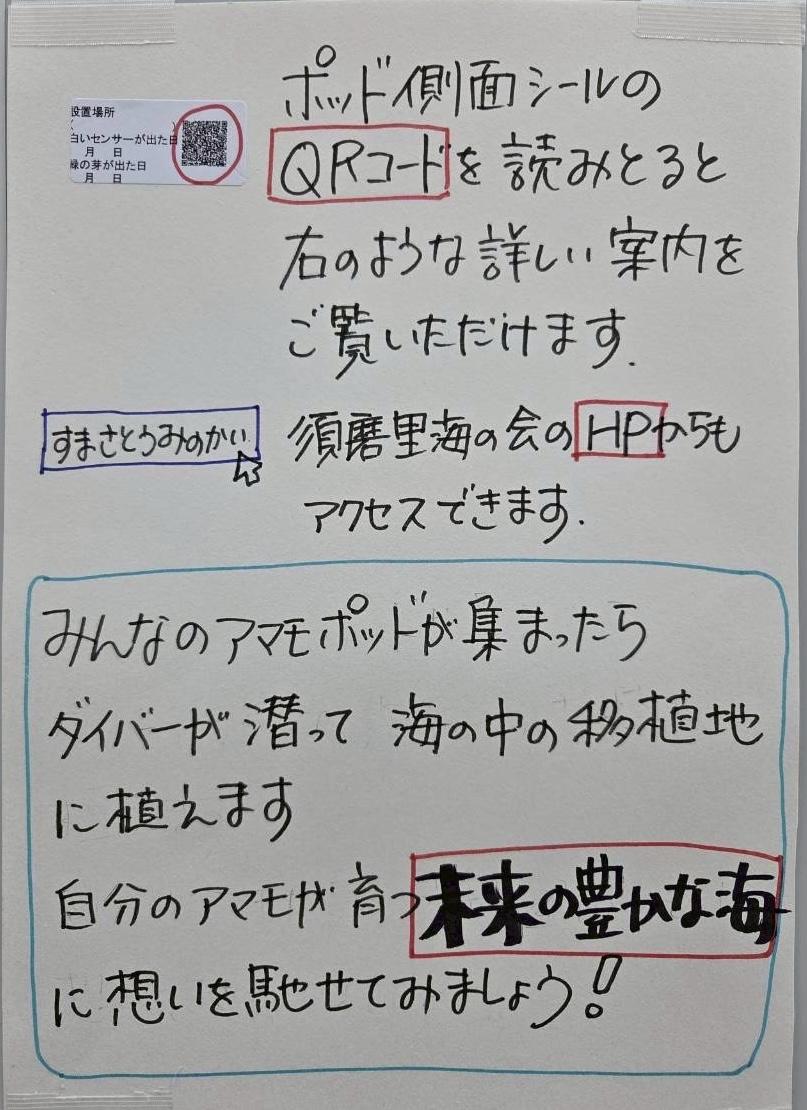 ポッド側面シールの
QRコードを読みとると
右のような詳しい案内を
ご覧いただけます.
設置場所
( )
白いセンサーが出た日
月 日
緑の芽が出た日
月 日
すまさとうみのかい
須磨里海の会のHPからも
アクセスできます.
みんなのアマモポッドが集まったら
ダイバーが潜って 海の中の移植地
に植えます
自分のアマモが育つ未来の豊かな海
に想いを馳せてみましょう!